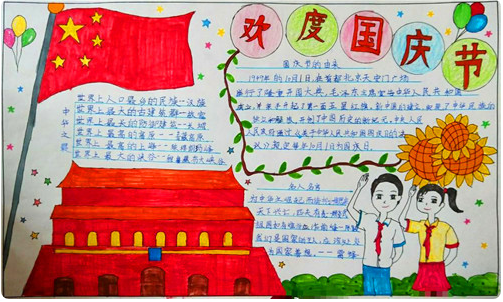 欢度国庆节
中华之最
世界上人口最多的民族--汉族
世界上最大的古建筑群--故宫
世界上最大的防御建筑--长城
世界上最高的高原--青藏高原
世界上最高的山峰--珠穆朗玛峰
世界上最大的峡谷--雅鲁藏布大峡谷
国庆节的由来
1949年的10月1日,在首都北京天安门广场
举行了隆重开国大典,毛泽东主席宣告中华人民共和国
成立,并亲手升起了第一面五星红旗,
开创了中国历史的新纪元,中央人民
10月1日为国庆日。
名人名言
为中华之崛起而读书
天下兴亡,匹夫有责
我们是国家的主人,应该处处
为国家着想。--雷锋